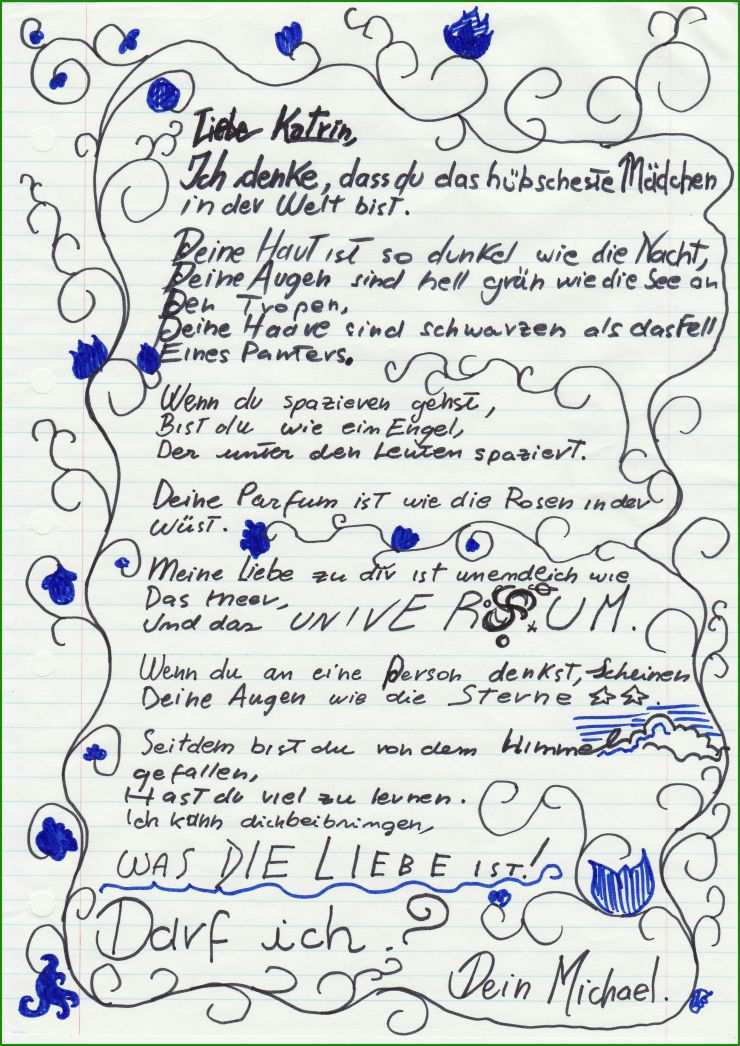 Liebe Katrin,
Ich denke, dass du das hübscheste Mädchen
in der Welt bist.
Deine Haut ist so dunkel wie die Nacht,
Deine Augen sind hell grün wie die See an
Den Tropen,
Deine Haare sind schwarzen als das Fell
Eines Panters.
Wenn du spazieren gehst,
Bist du wie ein Engel,
Der unter den Leuten spaziert.
Deine Parfum ist wie die Rosen in der
wüst.
Meine Liebe zu dir ist unendleich wie
Das meer,
Und das UNIVERSUM.
Wenn du an eine Person denkst, Scheinen
Deine Augen wie die Sterne
Seitdem bist du von dem Himmel
gefallen,
Hast du viel zu lernen.
Ich kann dich beibringen,
WAS DIE LIEBE IST!
Darf ich.?
Dein Michael.